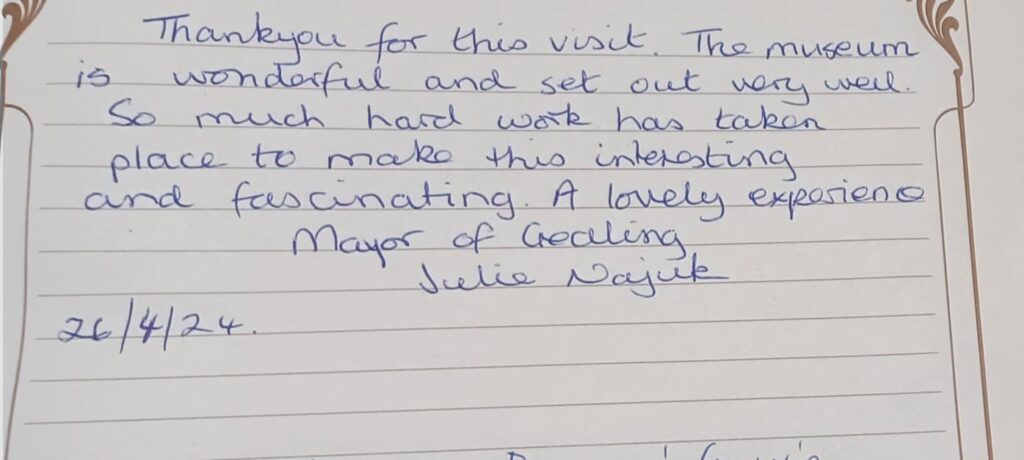 Thankyou for this visit. The museum
is wonderful and set out very well.
So much hard work has taken
place to make this interesting
and fascinating. A lovely experience
Mayor of Gedling
Julie Najuk
26/4/24.